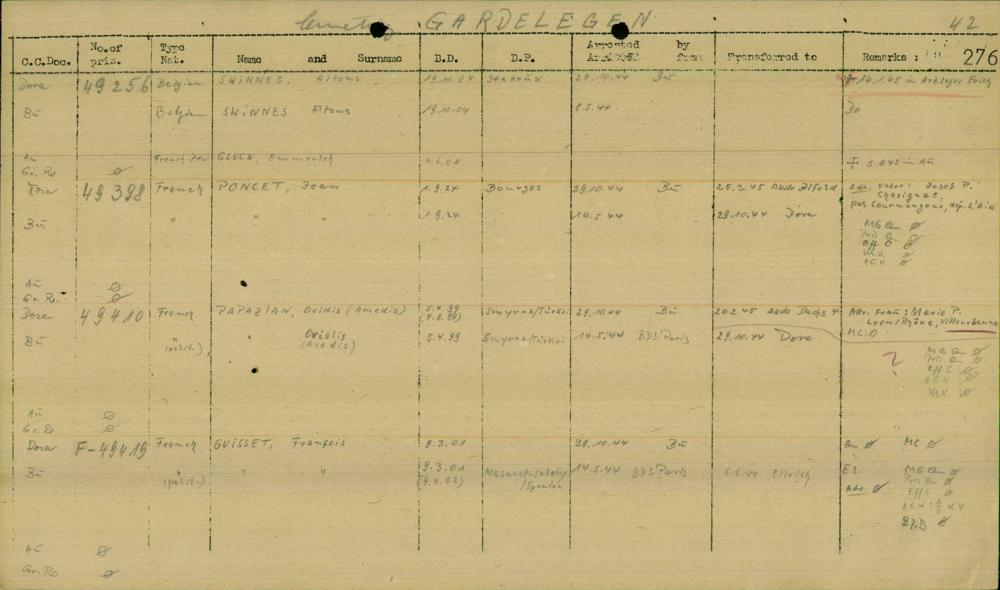 Cemetery GARDELEGEN 42
C.C.Doc. No. of pris. Type Nat. Name and Surname B.D. D.P. Arrested by from Transferred to Remarks : 276
Dora 49256 Belgian SWiNNES, Alfons 19.10.04 Stabrük 29.10.44 Bu 14.1.45 in Arblager Erich
Bu Belgian SWiNNES Alfons 19.10.04 8.5.44 Do
Au French GLUCK, Emmerich 4.6.08 † 5.8.42 in Au
Gr. Ro ∅
Dora 49398 French PONCET, Jean 1.9.24 Bourges 29.10.44 Bu 25.3.45 Akdo Ilfeld Adr. Vater: Josef P.
Chevignat,
par Courmangoux, dep. L'Ain
Bu " " " 1.9.24 14.5.44 29.10.44 Dora
MG Qu ∅
Pris Q ∅
Eff C ∅
∅
AEK ∅
Au ∅
Gr. Ro. ∅
Dora 49410 French PAPAZiAN, Ovidis (Amedis) 5.4.99 Smyrna/Türkei 29.10.44 Bu 20.2.45 Akdo Dachs 4 Adr. Frau: Marie P.
Lyon/Rhône, Villeurbanne
Bu (polit.) " Oviolis (Avedis) 5.4.99 Smyrna/Türkei 14.5.44 BDS Paris 29.10.44 Dora MC: ∅
?
MG Qu ∅
Pris Qu ∅
Eff C ∅
AEK ∅
∅
Au ∅
Gr. Ro ∅
Dora F-49419 French GUiSSET, François 9.3.01 29.10.44 Bu Qu ∅ MC ∅
Bu (polit.) " " 9.3.01 14.5.44 BDS Paris 6.6.44 Ellrich E2 MG Qu ∅
(9.4.02) /Spanien Pris Qu ∅
Adr ∅ Eff C ∅
∅
Au ∅
Gr. Ro ∅